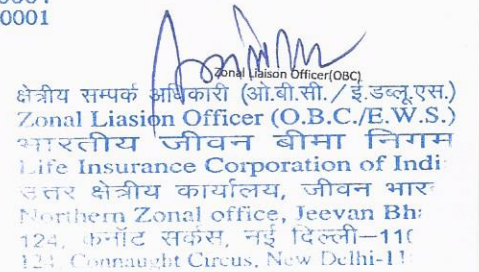 0001
Zonal Liaison Officer(OBC)
क्षेत्रीय सम्पर्क अधिकारी (ओ.बी.सी./ई.डब्लू.एस.)
Zonal Liasion Officer (O.B.C./E.W.S.)
भारतीय जीवन बीमा निगम
Life Insurance Corporation of Indi
उत्तर क्षेत्रीय कार्यालय, जीवन भार
Northern Zonal office, Jeevan Bh
124, कनॉट सर्कस, नई दिल्ली-110
124, Connaught Circus, New Delhi-11